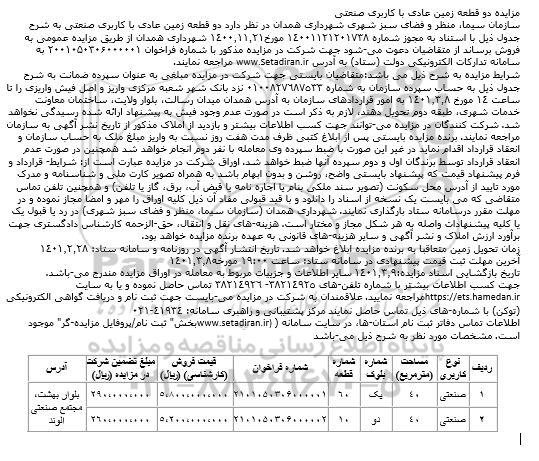 مزایده دو قطعه زمین عادی با کاربری صنعتی
سازمان سیما، منظر و فضای سبز شهری شهرداری همدان در نظر دارد دو قطعه زمین عادی با کاربری صنعتی به شرح
جدول ذیل با استناد به مجوز شماره ۱۴۰۰۱۱۲۱۲۰۱۷۳۸ مورخ۱۴۰۰,۱۱,۲۱ شهرداری همدان از طریق مزایده عمومی به
فروش برساند از متقاضیان دعوت می-شود جهت شرکت در مزایده مذکور با شماره فراخوان ۲۰۰۱۰۵۰۳۰۶۰۰۰۰۰۱ به
سامانه تدارکات الکترونیکی دولت (ستاد) به آدرس www.setadiran.ir مراجعه نمایند.
شرایط مزایده به شرح ذیل می باشد:متقاضیان بایستی جهت شرکت در مزایده مبلغی به عنوان سپرده ضمانت به شرح
جدول ذیل به حساب سپرده سازمان به شماره ۰۱۰۰۸۲۷۶۸۷۵۳۳ نزد بانک شهر شعبه مرکزی واریز و اصل فیش واریزی را تا
ساعت ۱۴ مورخ ۱۴۰۱,۳,۸ به امور قراردادهای سازمان به آدرس همدان میدان رسالت، بلوار ولایت، ساختمان معاونت
خدمات شهری، طبقه دوم تحویل دهند. لازم به ذکر است در صورت عدم وجود فیش به پیشنهاد ارائه شده رسیدگی نخواهد
شد. شرکت کنندگان در مزایده می-توانند جهت کسب اطلاعات بیشتر و بازدید از املاک مذکور از تاریخ نشر آگهی به سازمان
مراجعه نمایند. برنده مزایده بایستی پس از ابلاغ کتبی ظرف مدت هفت روز نسبت به واریز مبلغ ملک به حساب سازمان و
انعقاد قرارداد اقدام نماید در غیر این صورت با ضبط سپرده وی معامله با نفر دوم انجام خواهد شد همچنین در صورت عدم
انعقاد قرارداد توسط برندگان اول و دوم سپرده آنها ضبط خواهد شد. اوراق شرکت در مزایده عبارت است از: شرایط- قرارداد و
فرم پیشنهاد قیمت که پیشنهاد بایستی واضح، روشن و بدون ابهام باشد به همراه تصویر کارت ملی و شناسنامه و مدرک
مورد تایید از آدرس محل سکونت (تصویر سند ملکی بنام یا اجاره نامه یا قبض آب، برق، گاز یا تلفن) و همچنین تلفن تماس
متقاضی که می بایست یک نسخه از اسناد را دانلود و با قید قبولی مفاد آن ذیل کلیه اوراق را مهر و امضا مجاز نموده و در
مهلت مقرر درسامانه ستاد بارگذاری نمایند. شهرداری همدان (سازمان سیما، منظر و فضای سبز شهری) در رد یا قبول یک
یا کلیه پیشنهادات واصله به هر شکل مجاز و مختار است. هزینه-های نقل و انتقال، حق-الزحمه کارشناس دادگستری جهت
برآورد ارزش املاک و نشر آگهی و سایر هزینه-های قانونی به عهده برنده مزایده خواهد بود.
زمان تحویل زمین متعاقبا به برنده مزایده ابلاغ خواهد شد. تاریخ انتشار آگهی در روزنامه و سامانه ستاد: ۱۴۰۱,۲,۲۸
آخرین مهلت ثبت قیمت پیشنهادی در سامانه ستاد: ساعت ۱۹:۰۰ مورخه۱۴۰۱,۳,۸
تاریخ بازگشایی اسناد مزایده:۱۴۰۱,۳,۹ سایر اطلاعات و جزییات مربوط به معامله در اوراق مزایده مندرج می-باشد.
جهت کسب اطلاعات بیشتر با شماره تلفن-های ۳۸۲۱۴۹۲۵- ۳۸۲۱۴۹۲۶ تماس حاصل نموده و یا به سایت
https://ets.hamedan.irمراجعه نمایید. علاقمندان به شرکت در مزایده می-بایست جهت ثبت نام و دریافت گواهی الکترونیکی
(توکن) با شماره-های ذیل تماس حاصل نمایند مرکز پشتیبانی و راهبری سامانه: ۴۱۹۳۴-۰۲۱
اطلاعات تماس دفاتر ثبت نام استان-ها، در سایت سامانه ( (www.setadiran.irبخش" ثبت نام/پروفایل مزایده-گر" موجود
است. مشخصات مورد نظر به شرح ذیل می-باشد
ردیف نوع کاربری مساحت (مترمربع) شماره بلوک شماره قطعه شماره فراخوان قیمت فروش (کارشناسی) (ریال) مبلغ تضمین شرکت در مزایده (ریال) آدرس
۱ صنعتی ۴۰ یک ۶۰ ۲۱۰۱۰۵۰۳۰۶۰۰۰۰۰۱ ۵,۸۰۰,۰۰۰,۰۰۰ ۲۹۰,۰۰۰,۰۰۰ بلوار بهشت، مجتمع صنعتی الوند
۲ صنعتی ۴۰ دو ۱۰ ۲۱۰۱۰۵۰۳۰۶۰۰۰۰۰۲ ۵,۲۰۰,۰۰۰,۰۰۰ ۲۶۰,۰۰۰,۰۰۰